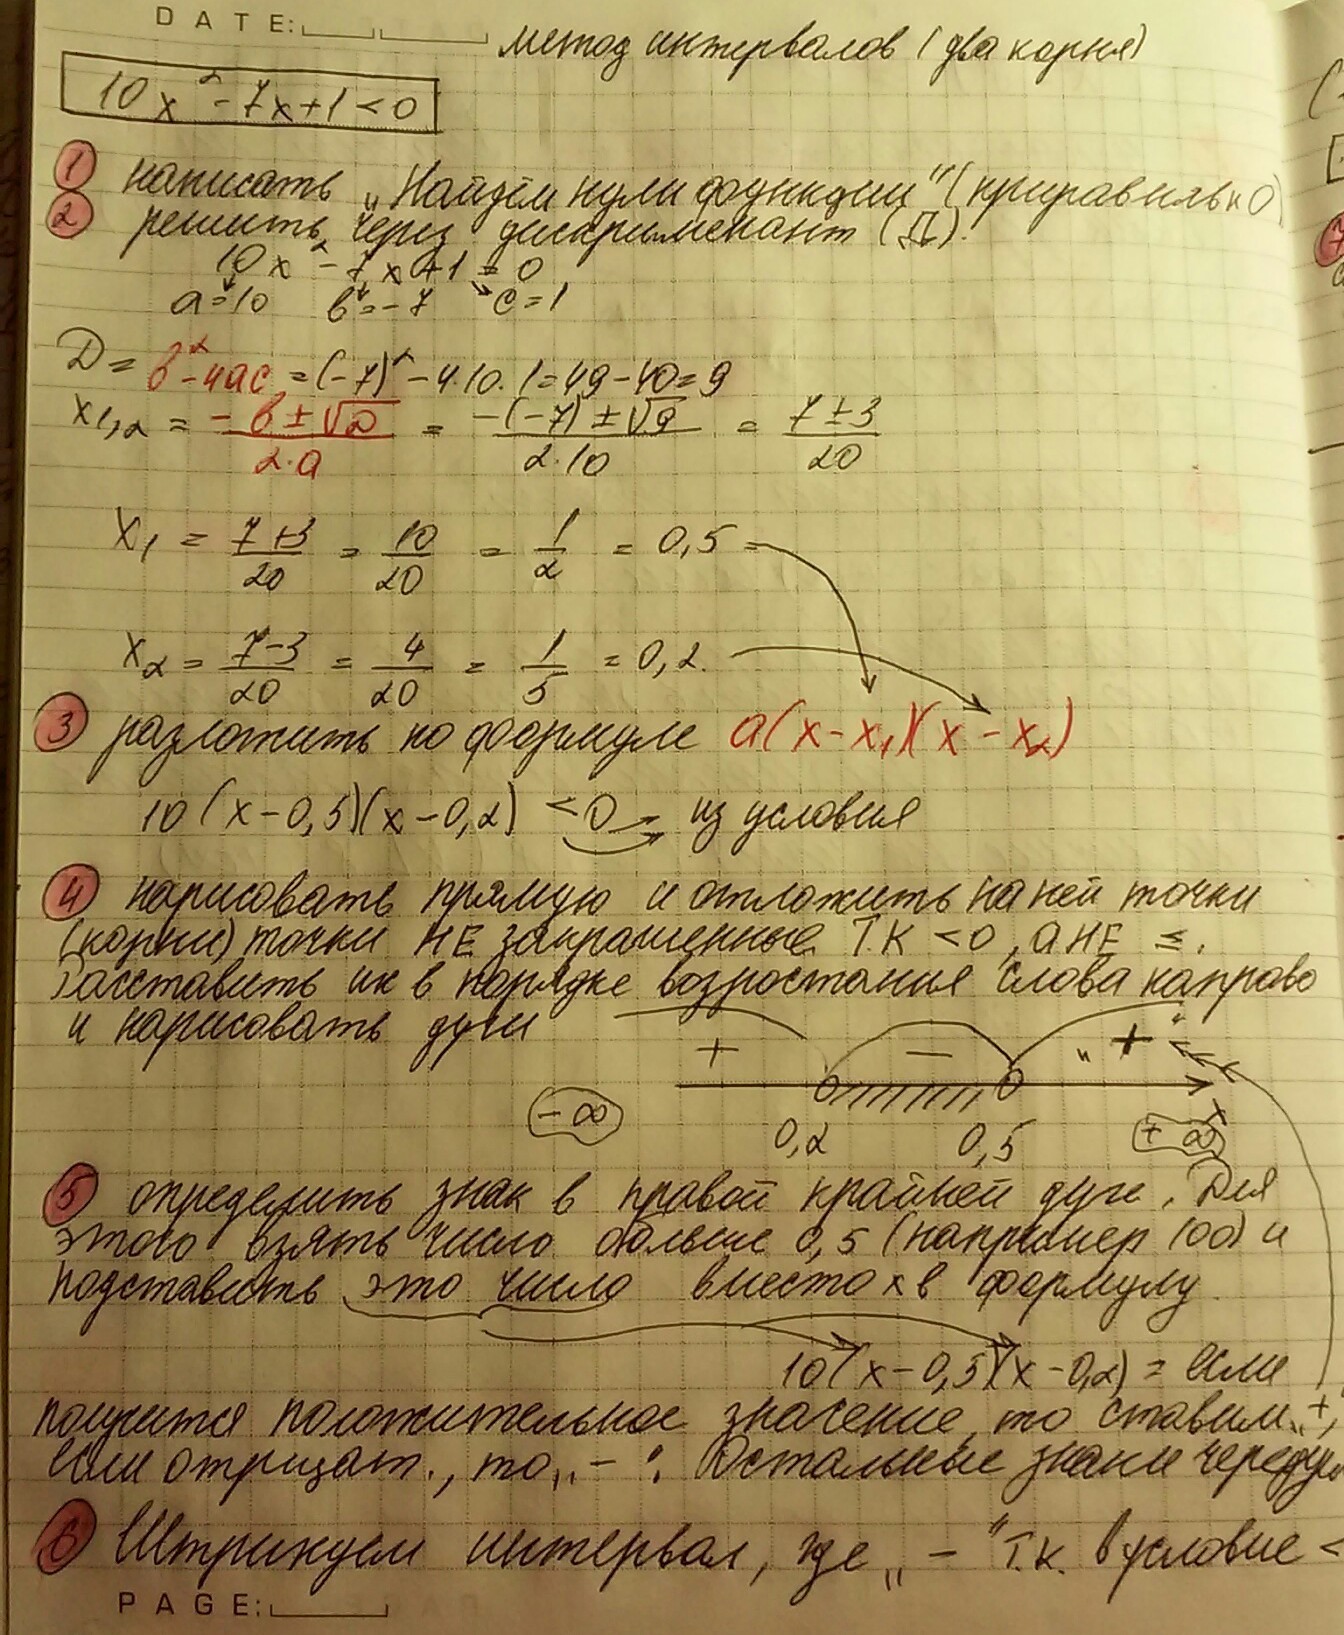 DATE:
метод интервалов (два корня)
10x² - 7x + 1 < 0
1 написать „Найдём нули функции" (приравнять к 0)
2 решить через дискриминант (Д).
10x² - 7x + 1 = 0
a = 10 в = -7 c = 1
D = в² - 4ac = (-7)² - 4·10·1 = 49 - 40 = 9
x₁,₂ = (-в ± √D)/(2·a) = (-(-7) ± √9)/(2·10) = (7 ± 3)/20
x₁ = (7+3)/20 = 10/20 = 1/2 = 0,5
x₂ = (7-3)/20 = 4/20 = 1/5 = 0,2.
3 разложить по формуле a(x - x₁)(x - x₂)
10(x - 0,5)(x - 0,2) < 0 → из условия
4 нарисовать прямую и отложить на ней точки
(корни) точки НЕ закрашенные т.к < 0, а НЕ ≤.
Расставить их в порядке возростания слева направо
и нарисовать дуги
+ - „+"
-∞ 0,2 0,5 +∞ x
5 определить знак в правой крайней дуге. Для
этого взять число больше 0,5 (например 100) и
подставить это число вместо x в формулу.
10(x - 0,5)(x - 0,2) = если
получится положительное значение, то ставим „+,
если отрицат., то „-". Остальные знаки череду
6 Штрихуем интервал, где „-" т.к. в условие <
PAGE: